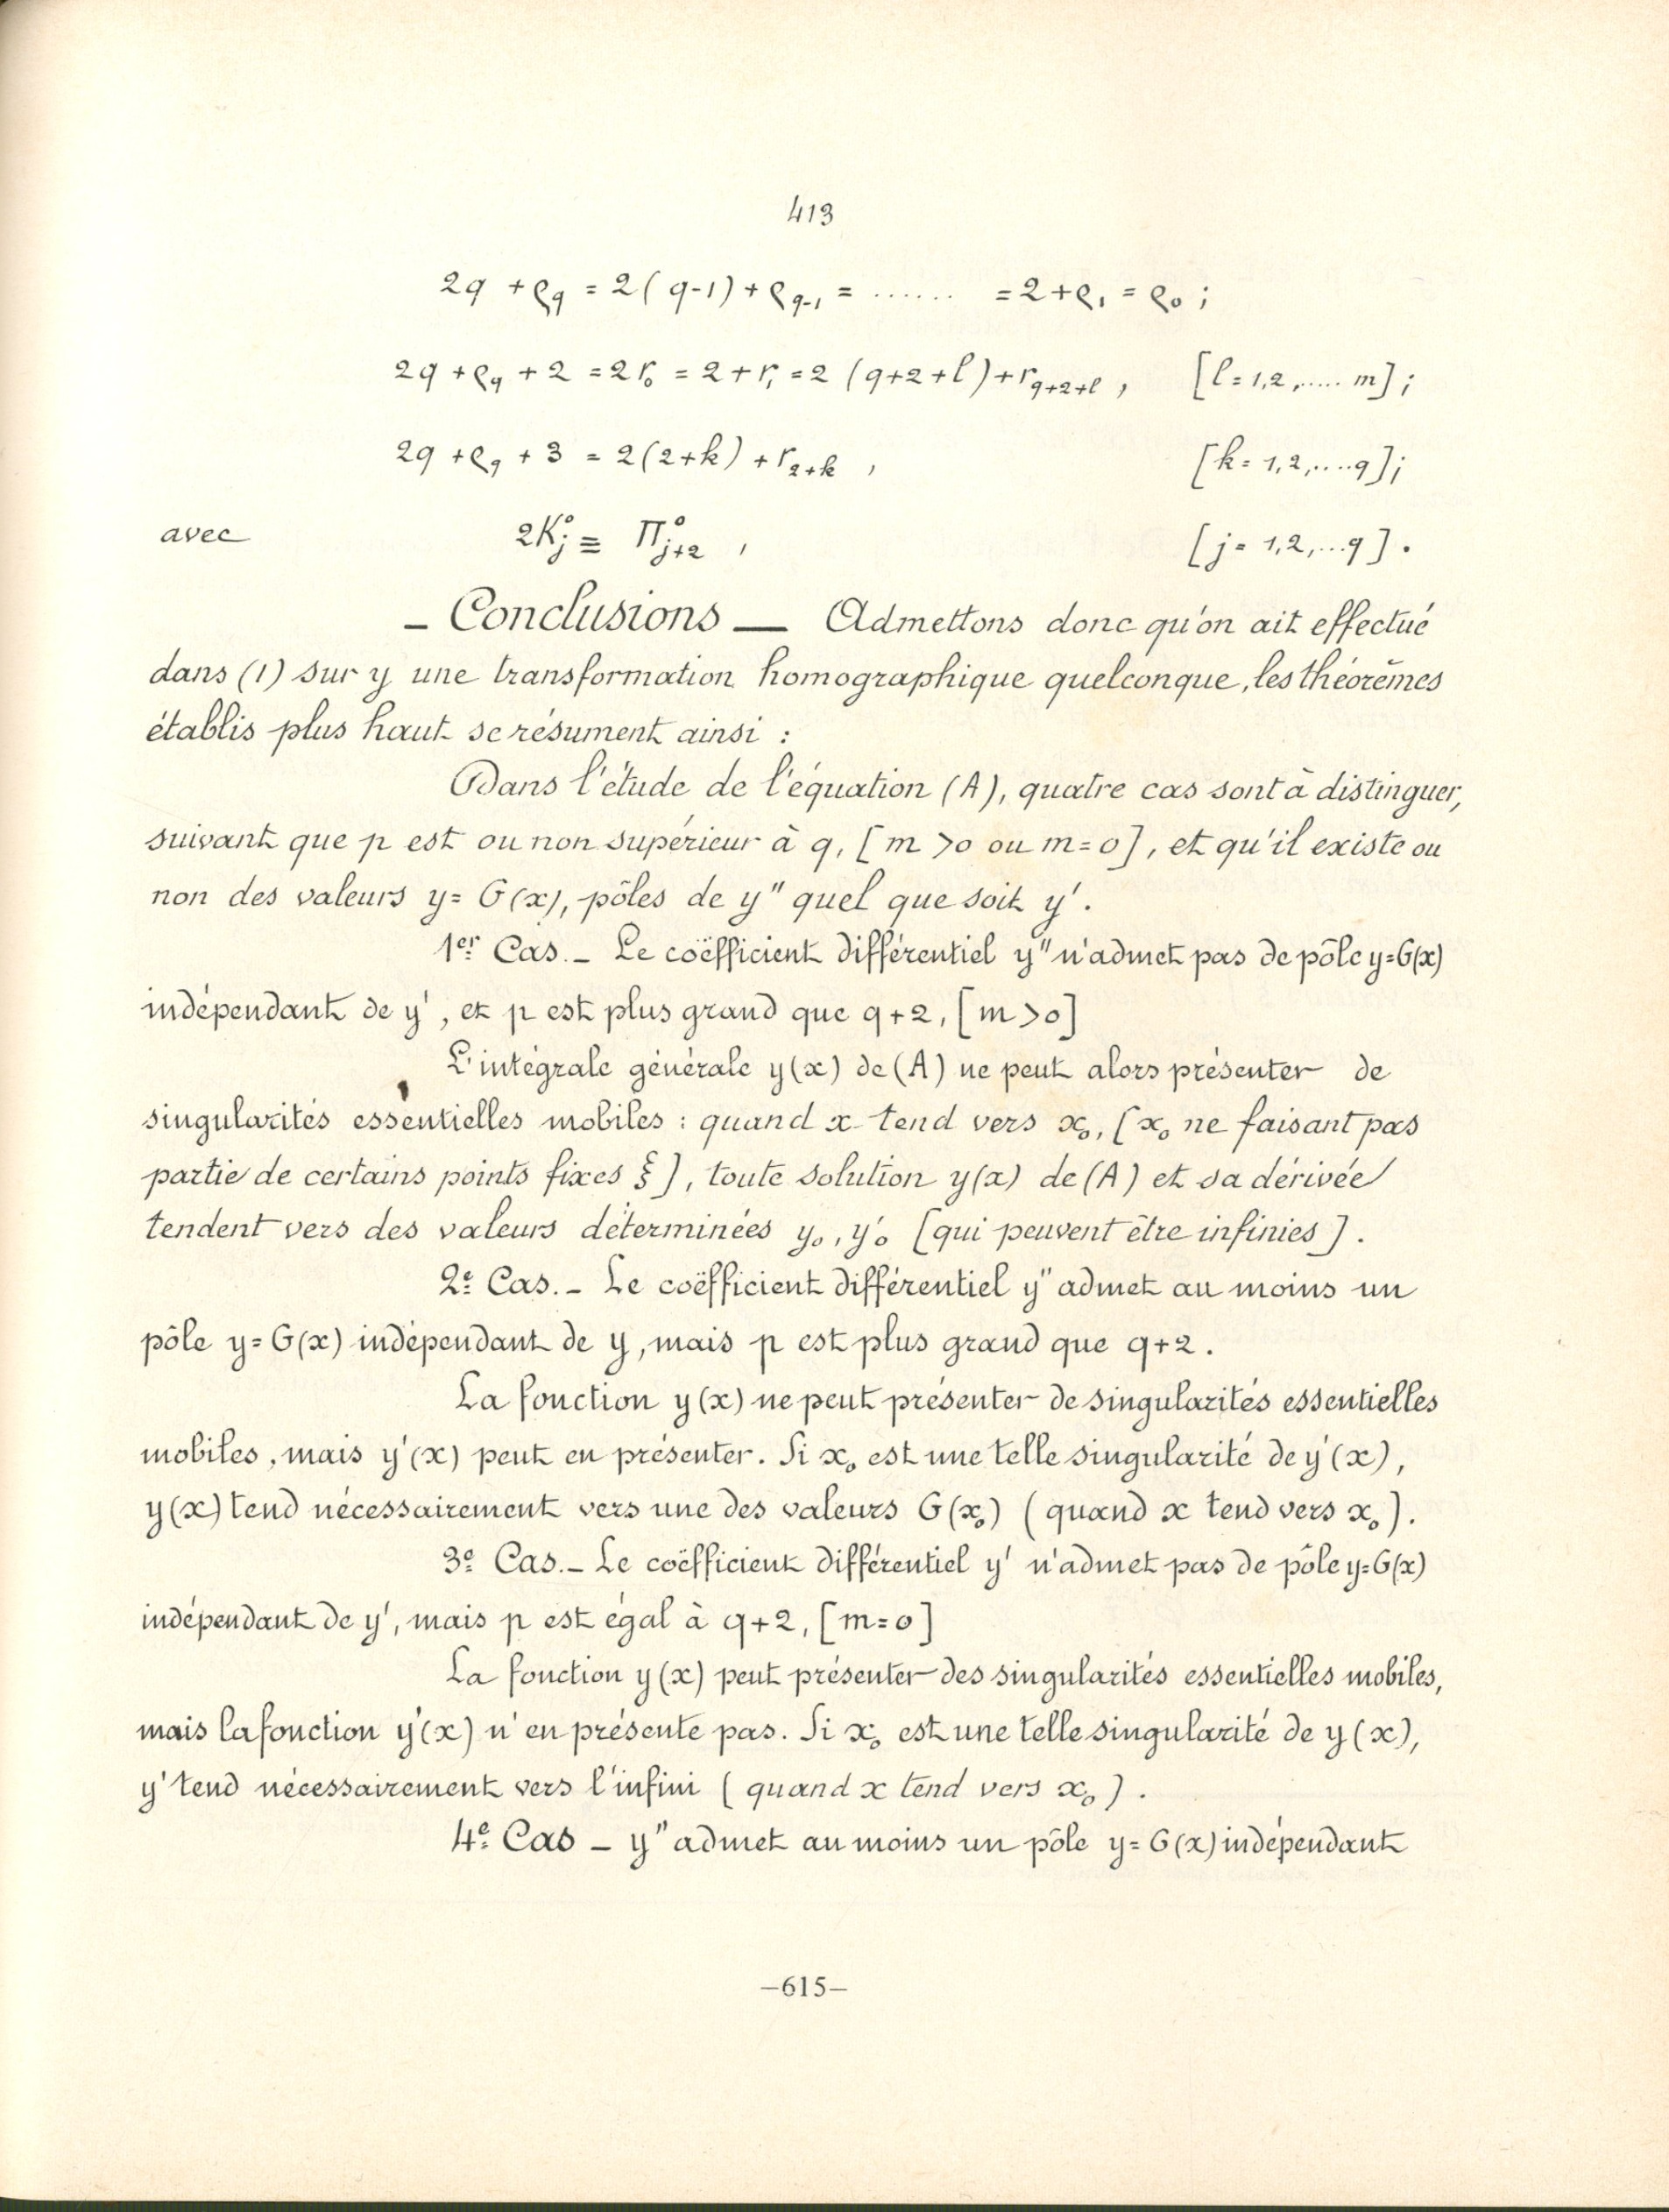 413
2q + ϱ_q = 2(q-1) + ϱ_{q-1} = ...... = 2 + ϱ_1 = ϱ_0 ;
2q + ϱ_q + 2 = 2r_0 = 2 + r_1 = 2 (q+2+l) + r_{q+2+l} , [l = 1,2,..... m] ;
2q + ϱ_q + 3 = 2(2+k) + r_{2+k} , [k = 1,2,....q] ;
avec 2K°_j ≡ Π°_{j+2} , [j = 1,2,...q] .
– Conclusions — Admettons donc qu'on ait effectué
dans (1) sur y une transformation homographique quelconque, les théorèmes
établis plus haut se résument ainsi :
Dans l'étude de l'équation (A), quatre cas sont à distinguer,
suivant que p est ou non supérieur à q, [m >0 ou m=0], et qu'il existe ou
non des valeurs y= G(x), pôles de y" quel que soit y'.
1er Cas. – Le coëfficient différentiel y" n'admet pas de pôle y=G(x)
indépendant de y', et p est plus grand que q+2, [m >0]
L'intégrale générale y(x) de (A) ne peut alors présenter de
singularités essentielles mobiles : quand x tend vers x_0, [x_0 ne faisant pas
partie de certains points fixes ξ], toute solution y(x) de (A) et sa dérivée
tendent vers des valeurs déterminées y_0, y'_0 [qui peuvent être infinies].
2e Cas. – Le coëfficient différentiel y" admet au moins un
pôle y= G(x) indépendant de y, mais p est plus grand que q+2.
La fonction y(x) ne peut présenter de singularités essentielles
mobiles, mais y'(x) peut en présenter. Si x_0 est une telle singularité de y'(x),
y(x) tend nécessairement vers une des valeurs G(x_0) (quand x tend vers x_0).
3e Cas. – Le coëfficient différentiel y' n'admet pas de pôle y=G(x)
indépendant de y', mais p est égal à q+2, [m=0]
La fonction y(x) peut présenter des singularités essentielles mobiles,
mais la fonction y'(x) n'en présente pas. Si x_0 est une telle singularité de y(x),
y' tend nécessairement vers l'infini (quand x tend vers x_0).
4e Cas – y" admet au moins un pôle y= G(x) indépendant
–615–